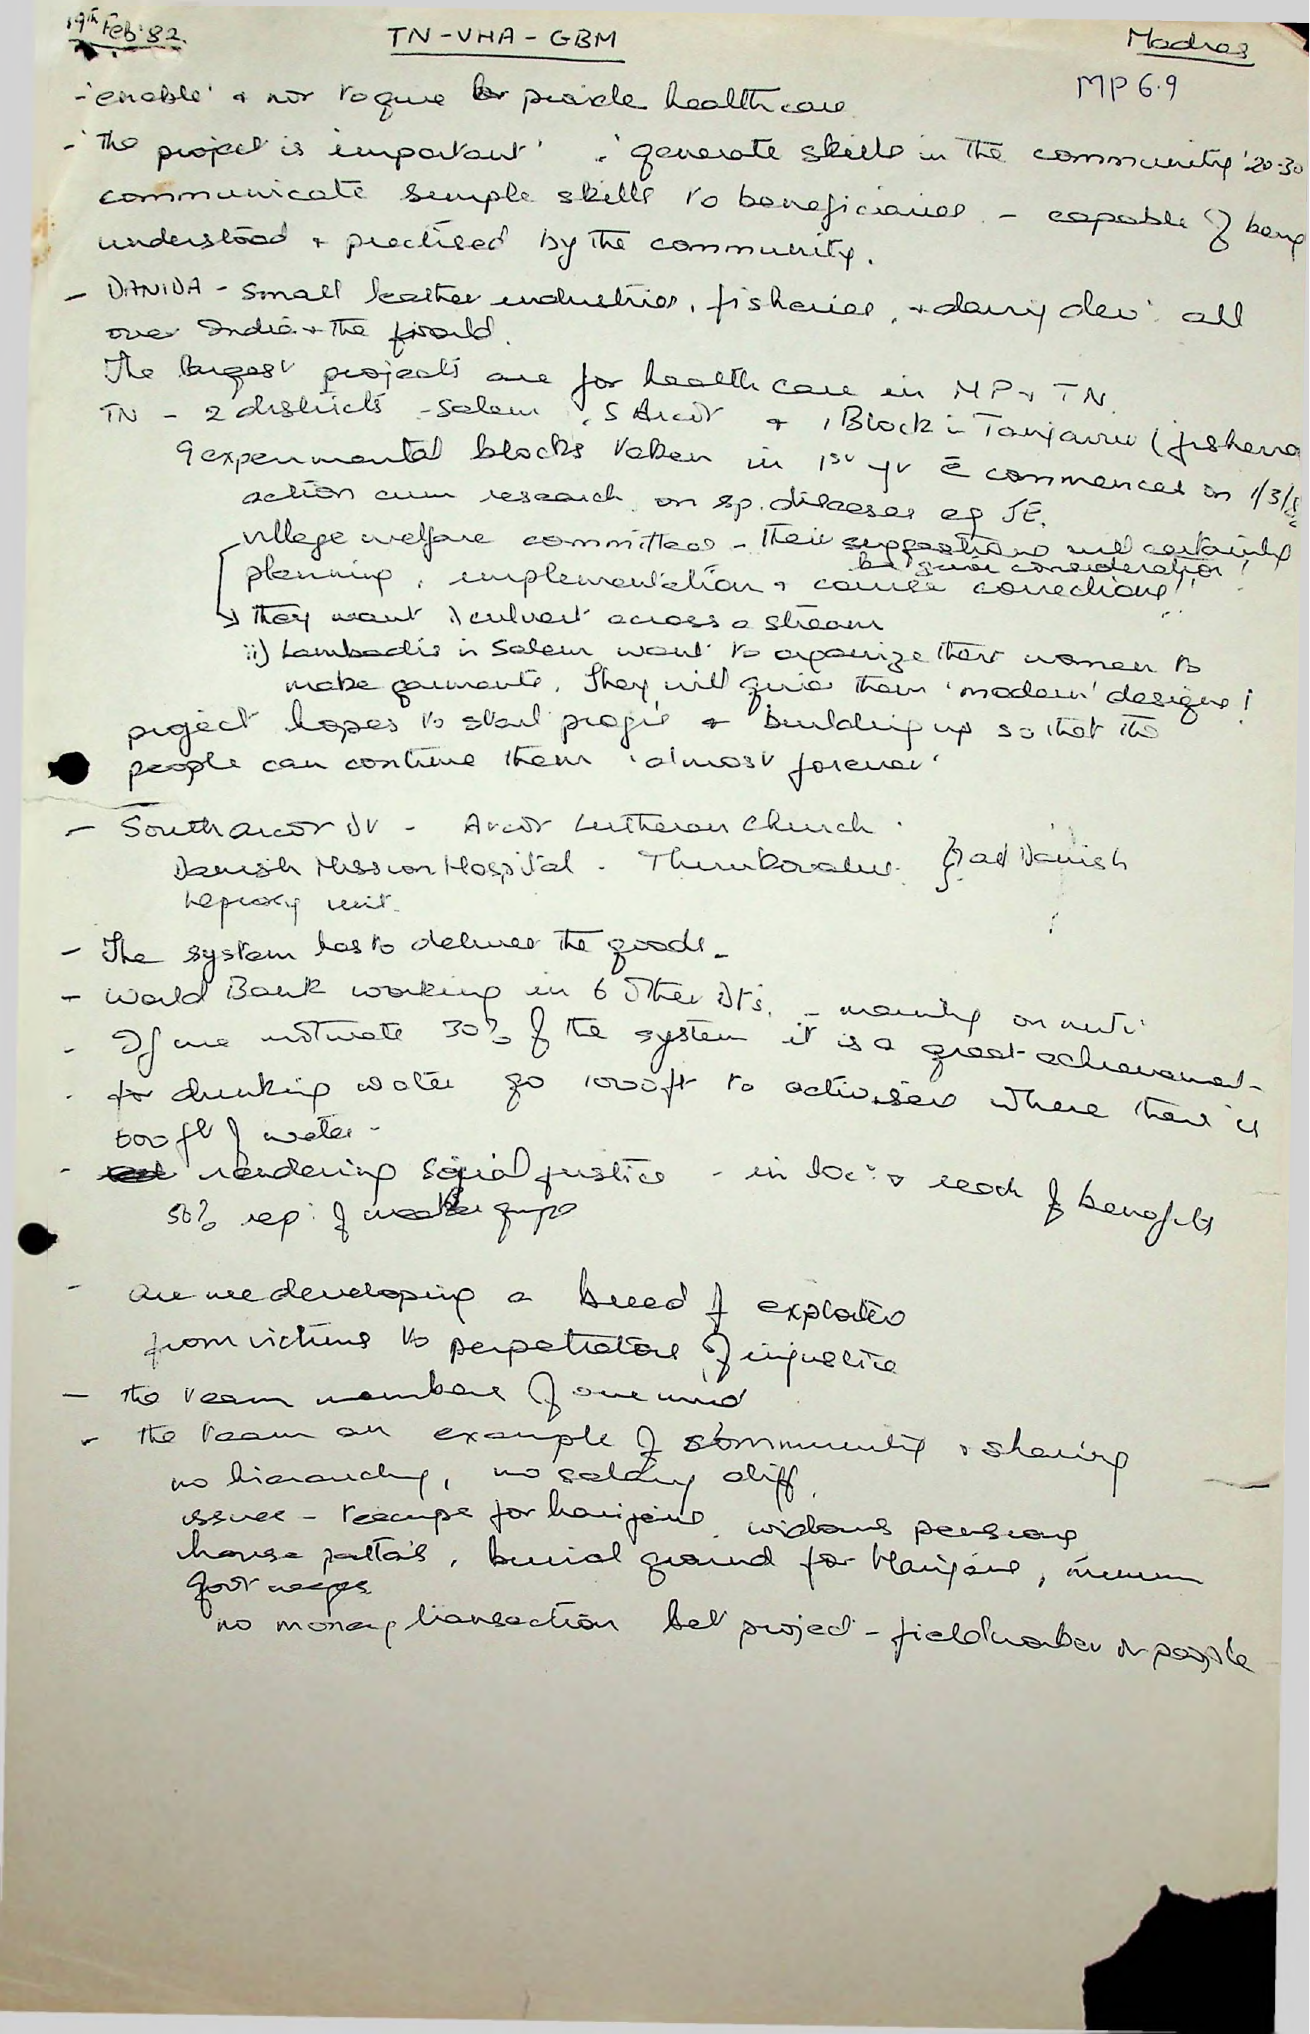 19th Feb '82 TN-VHA-GBM Madras
MP 6.9
- 'enable' & not to give or provide health care
- 'The project is important' . 'generate skills in the community' 20-30
communicate simple skills to beneficiaries - capable of being
understood & practised by the community.
- DANIDA - small leather industries, fisheries, & dairy dev: all
over India & the world.
The largest projects are for health care in MP & TN.
TN - 2 districts - Salem, S Arcot & 1 Block in Tanjavur (fisherma
9 experimental blocks taken in 1st yr c̄ commences on 1/3/82
action cum research on sp. diseases eg JE.
village welfare committees - their suggestions will certainly
be given consideration!
planning, implementation & course corrections!!
↳ they want i) culvert across a stream
ii) Lambadis in Salem want to organize their women to
make garments. They will give them 'modern' designs!
project hopes to start progs & building up so that the
people can continue them 'almost forever'
- South Arcot Dt - Arcot Lutheran Church.
Danish Mission Hospital - Thirukovalur. } all Danish
Leprosy unit.
- The system has to deliver the goods -
- World Bank working in 6 other Dts. - mainly on nutri
- If we motivate 30% of the system it is a great achievement -
- for drinking water go 1000 ft to activisers where there is
600 ft of water -
- rendering social justice - in loc: & reach of benefits
50% rep: of weaker groups
- are we developing a breed of exploiters
from victims to perpetrators of injustice
- the team members of one mind
- the team an example of community & sharing
no hierarchy, no salary diff.
issues - recamps for harijans, widows pensions,
house pattas, burial ground for Harijans, minimum
govt wages
no money transaction bet project - fieldworker or people